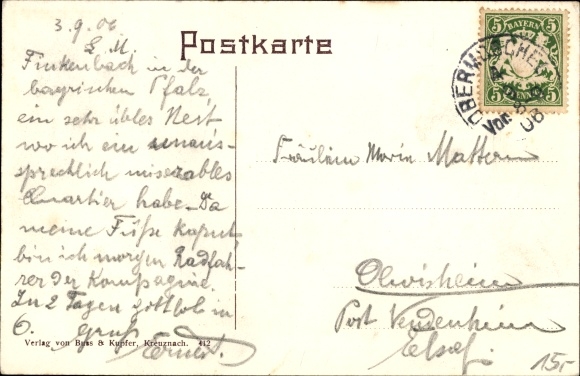 3.9.06
L. M.
Postkarte
Finkenbach in der
bayrischen Pfalz,
ein sehr übles Nest
wo ich ein unaus-
sprechlich miserables
Quartier habe. Da
meine Füße kaput,
bin ich morgen Radfah-
rer der Kompagnie.
In 2 Tagen gottlob in
6. Gruß
Ernst.
Verlag von Buss & Kupfer, Kreuznach. 412
BAYERN
5 5
PFENNIG
5 5
Vor.
Fräulein Marie Mattern
Olwisheim
Post Vendenheim
Elsaß.
15,-